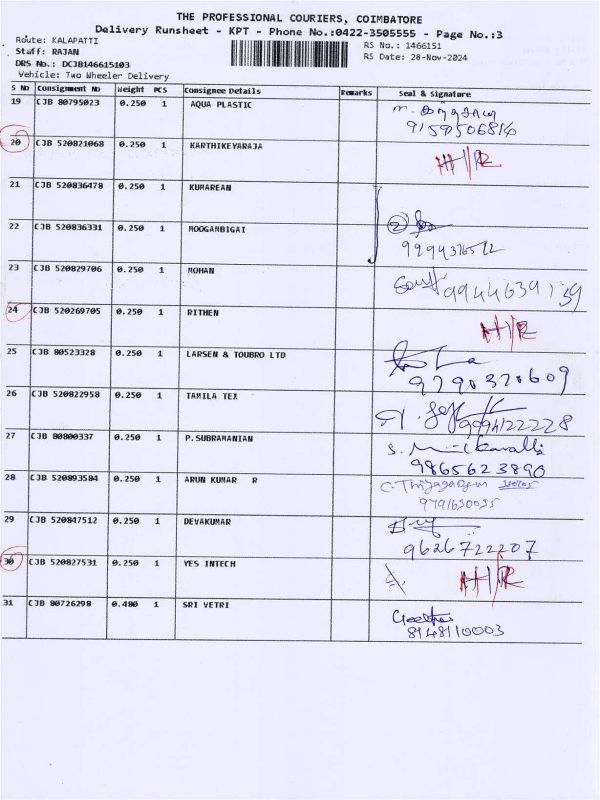 THE PROFESSIONAL COURIERS, COIMBATORE
Delivery Runsheet - KPT - Phone No.:0422-3505555 - Page No.:3
Route: KALAPATTI
RS No.: 1466151
Staff: RAJAN
RS Date: 28-Nov-2024
DRS No.: DCJB146615103
Vehicle: Two Wheeler Delivery
S No Consignment No Weight PCS Consignee Details Remarks Seal & Signature
19 CJB 80795023 0.250 1 AQUA PLASTIC
9159506814
20 CJB 520821068 0.250 1 KARTHIKEYARAJA
21 CJB 520836478 0.250 1 KUMAREAN
22 CJB 520836331 0.250 1 MOOGAMBIGAI
2
23 CJB 520829706 0.250 1 MOHAN
24 CJB 520269705 0.250 1 RITHEN
25 CJB 80523328 0.250 1 LARSEN & TOUBRO LTD
9790320609
26 CJB 520822958 0.250 1 TAMILA TEX
9994122228
27 CJB 80800337 0.250 1 P.SUBRAMANIAN
9865623890
28 CJB 520893584 0.250 1 ARUN KUMAR R
29 CJB 520847512 0.250 1 DEVAKUMAR
9626722207
30 CJB 520827531 0.250 1 YES INTECH
31 CJB 80726298 0.480 1 SRI VETRI
8148110003